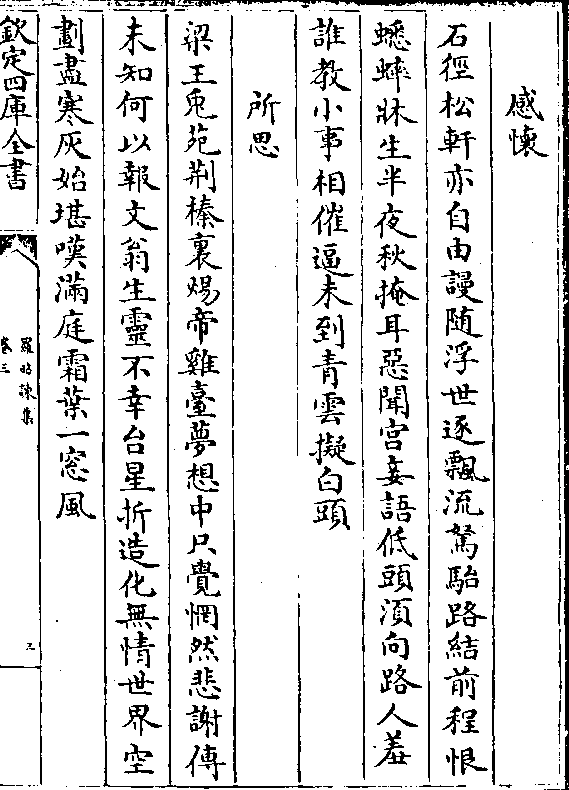 感懷
石徑松軒亦自由謾随浮世逐飄流駑駘路結前程恨
蟋蟀牀生半夜秋掩耳惡聞宫妾語低頭須向路人羞
誰教小事相催逼未到青雲擬白頭
所思
梁王兎苑荆榛裏煬帝雞臺夢想中只覺惘然悲謝傅
未知何以報文翁生靈不幸台星折造化無情世界空
劃盡寒灰始堪嘆滿庭霜葉一窓風
欽定四庫全書
羅昭諫集
卷三
三